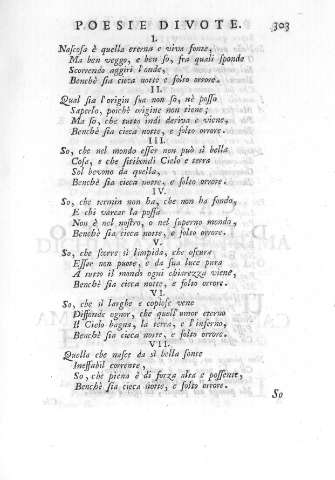 POESIE DIVOTE. 303
I.
Nascosa è quella eterna e viva fonte,
Ma ben veggo, e ben so, fra quali sponde
Scorrendo aggiri l'onde,
Benchè sia cieca notte e folto orrore.
II.
Qual sia l'origin sua non so, nè posso
Saperlo, poichè origine non tiene;
Ma so, che tutto indi deriva e viene,
Benchè sia cieca notte, e folto orrore.
III.
So, che nel mondo esser non può sì bella
Cosa, e che sitibondi Cielo e terra
Sol bevono da quella,
Benchè sia cieca notte, e folto orrore.
IV.
So, che termin non ha, che non ha fondo,
E chi varcar la possa
Non è nel nostro, o nel superno mondo,
Benchè sia cieca notte, e folto orrore.
V.
So, che scorre sì limpida, che oscura
Esser non puote, e da sua luce pura
A tutto il mondo ogni chiarezza viene,
Benchè sia cieca notte, e folto orrore.
VI.
So, che sì larghe e copiose vene
Diffonde ognor, che quell'umor eterno
Il Cielo bagna, la terra, e l'inferno,
Benchè sia cieca notte, e folto orrore.
VII.
Quella che nasce da sì bella fonte
Ineffabil corrente,
So, che piena è di forza alta e possente,
Benchè sia cieca notte, e folto orrore.
So